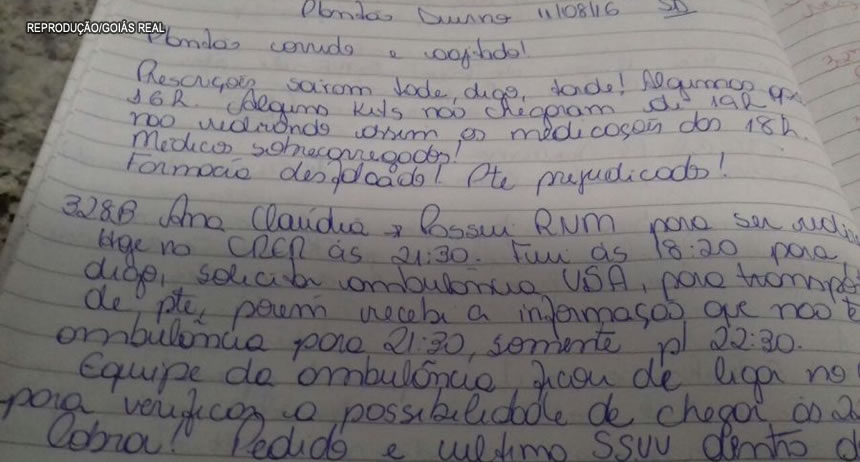 REPRODUÇÃO/GOIÁS REAL
Plantão Diurno 11/08/16 SD
Plantão corrido e agitado!
Prescrições sairam tade, digo, tarde! Algumas
16h. Alguns kits não chegaram até 19h
não vindo assim as medicações das 18h.
Médicos sobrecarregados!
Farmácia desfalcada! Pte prejudicados!
328B Ana Claúdia Possui RNM para ser
Hoje no CRER às 21:30. Fui às 18:20 para
digo, solicitar ambulância USA, para
de pte, porém recebi a informação que não
ambulância para 21:30, somente p/ 22:30.
Equipe da ambulância ficou de ligar no
para verificar a possibilidade de chegar às
Cobrar! Pedido e ultimo SSVV dentro